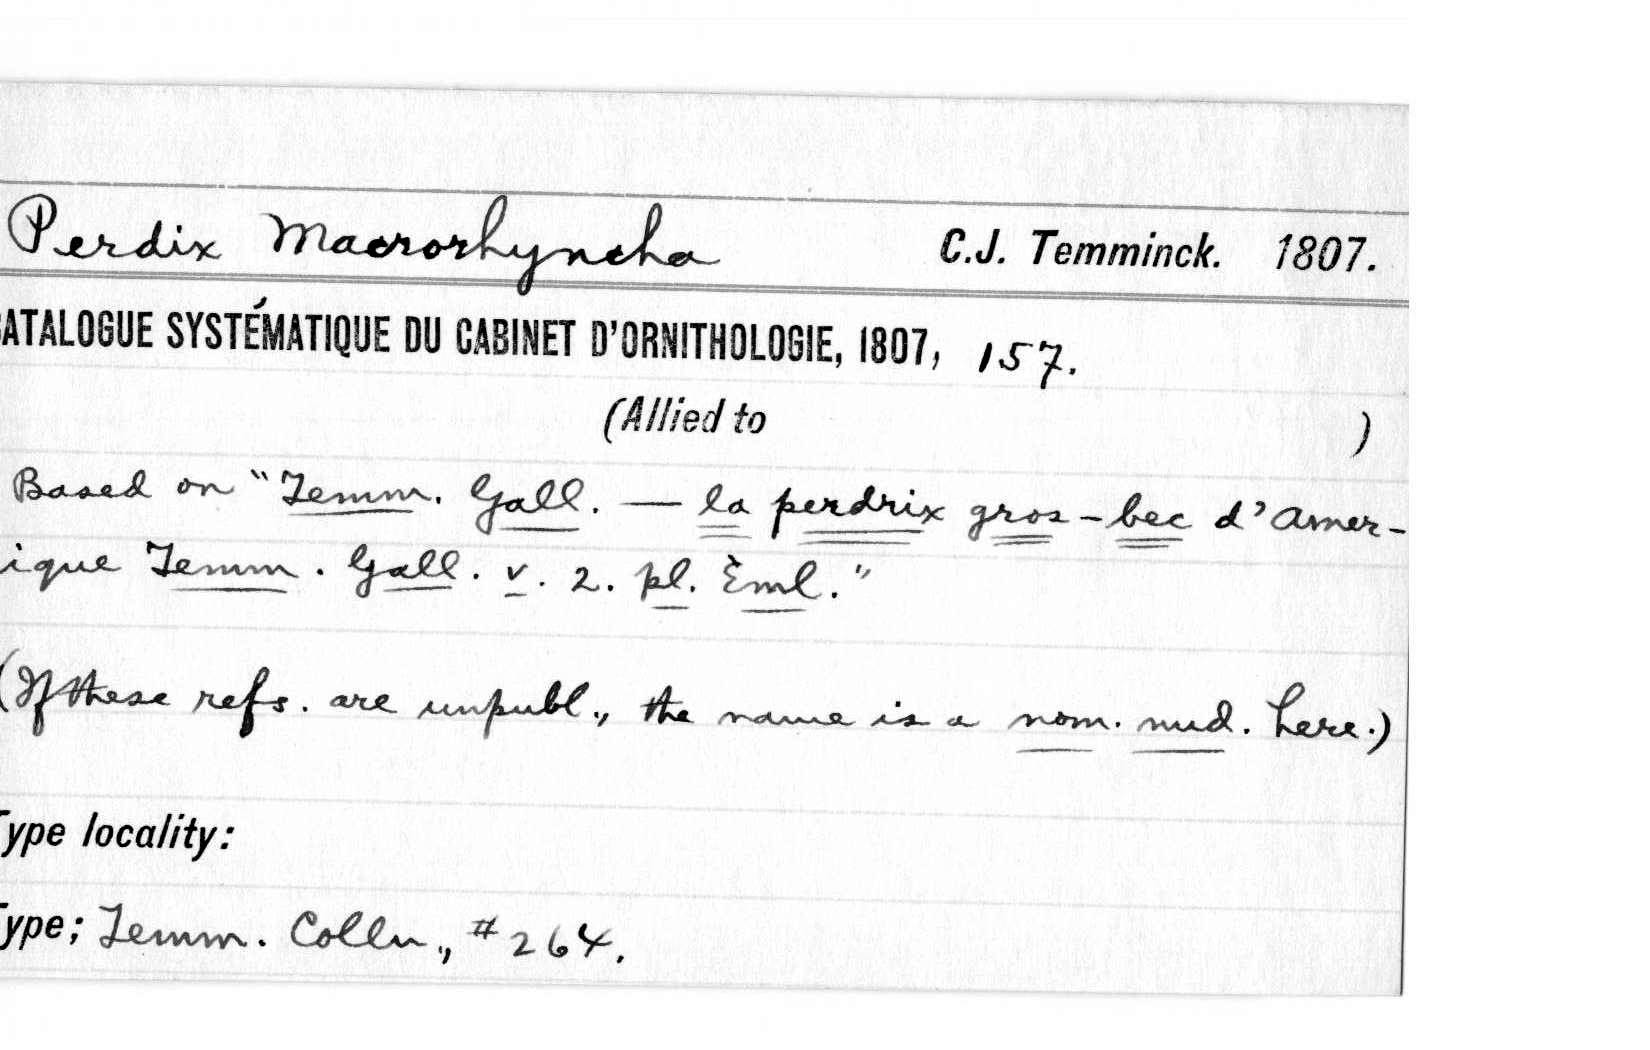 Perdix Macrorhyncha C.J. Temminck. 1807.
CATALOGUE SYSTÉMATIQUE DU CABINET D'ORNITHOLOGIE, 1807, 157.
(Allied to )
Based on "Temm. Gall. — la perdrix gros-bec d'Amer-
ique Temm. Gall. v. 2. pl. Èml."
(If these refs. are unpubl., the name is a nom. nud. here.)
Type locality:
Type; Temm. Colln., #264.